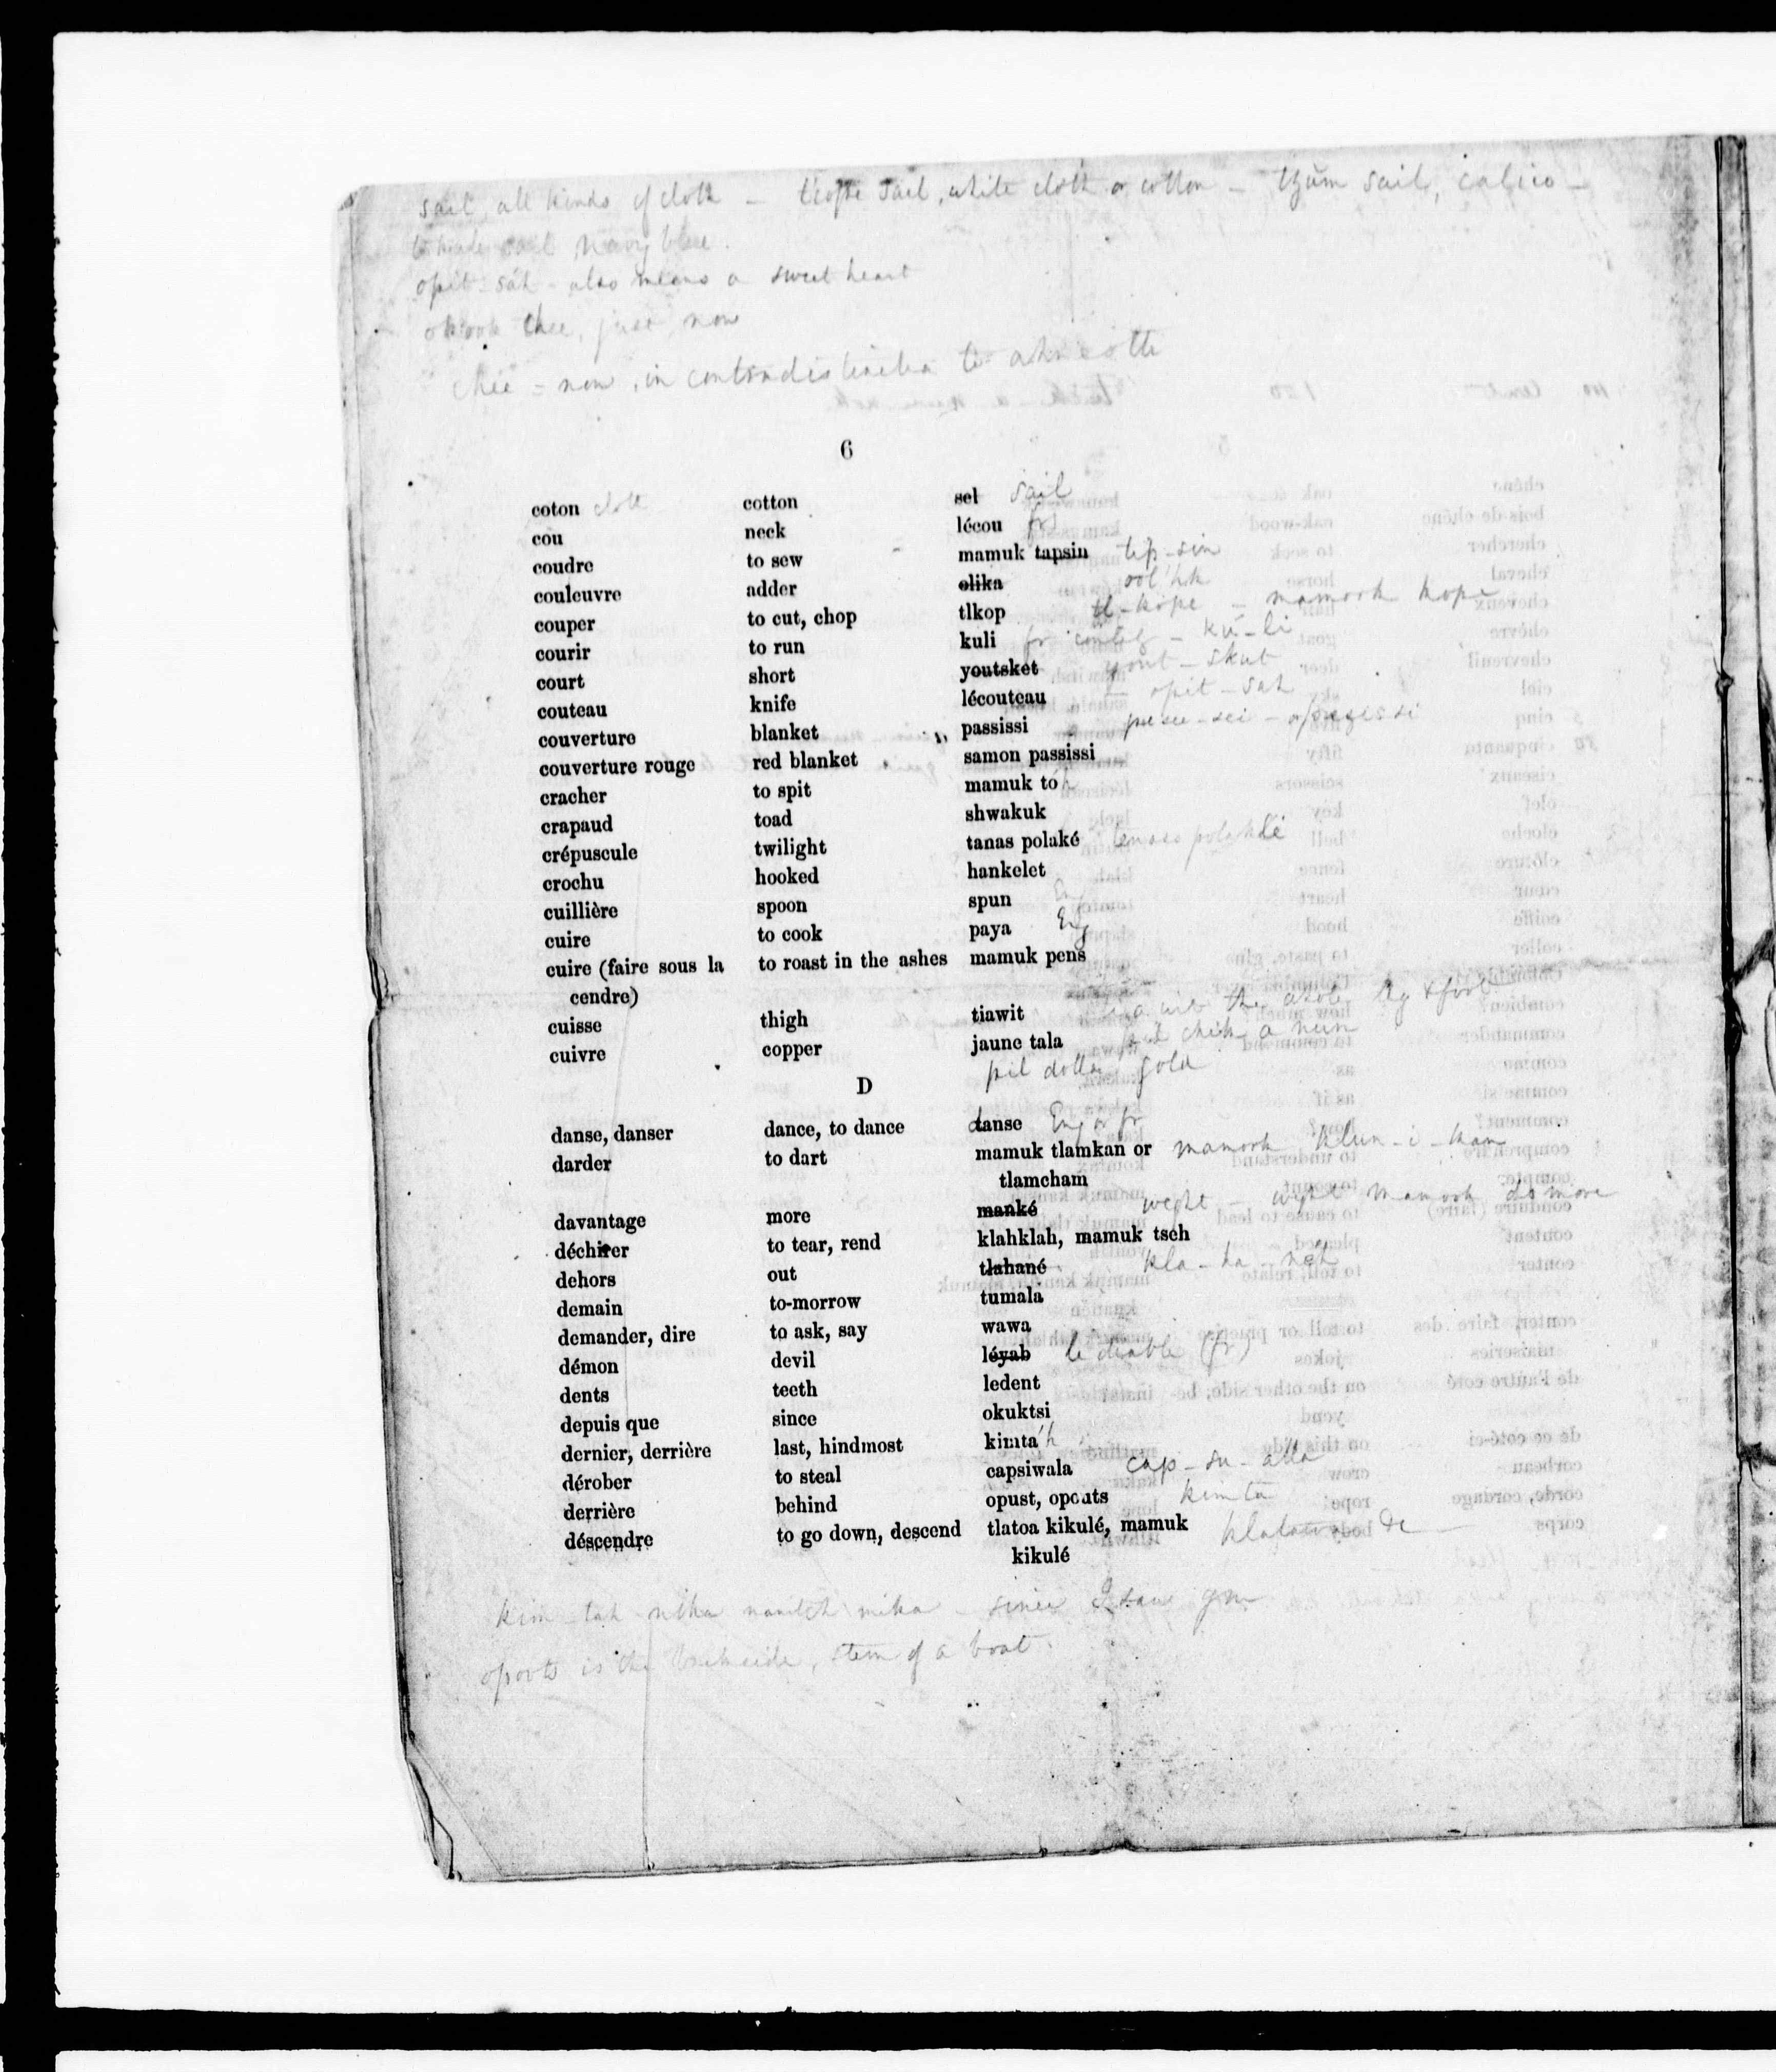 sail, all kinds of cloth - t'kope sail, white cloth or cotton - tzum sail, calico -
sail navy blue.
opit-sah - also means a sweetheart
okook chee, just now
chee = new, in contradistinction to ahncotte
6
coton cloth cotton sel sail
cou neck lécou fr
coudre to sew mamuk tapsin tip-sin
couleuvre adder olika
couper to cut, chop tlkop tl-kope - mamook kope
courir to run kuli fr ku-li
court short youtsket yout-skut
couteau knife lécouteau - opit-sah
couverture blanket passissi
couverture rouge red blanket samon passissi
cracher to spit mamuk tóh
crapaud toad shwakuk
crépuscule twilight tanas polaké tenass polaklé
crochu hooked hankelet
cuillière spoon spun Eng
cuire to cook paya Eng
cuire (faire sous la to roast in the ashes mamuk pens
cendre)
cuisse thigh tiawit the whole leg & foot
cuivre copper jaune tala
pil dolla, gold
D
danse, danser dance, to dance danse Eng or fr
darder to dart mamuk tlamkan or mamook klun-i-kan
tlamcham
davantage more manké weght - weght mamook do more
déchirer to tear, rend klahklah, mamuk tseh
dehors out tlahané kla-ha-neh
demain to-morrow tumala
demander, dire to ask, say wawa
démon devil léyab le diable (fr)
dents teeth ledent
depuis que since okuktsi
dernier, derrière last, hindmost kimtah
dérober to steal capsiwala cap-su-alla
derrière behind opust, opouts kimta
déscendre to go down, descend tlatoa kikulé, mamuk klatawa &c
kikulé
kim-tah nika nanitch mika - since I saw you
opoots is the backside, stern of a boat.